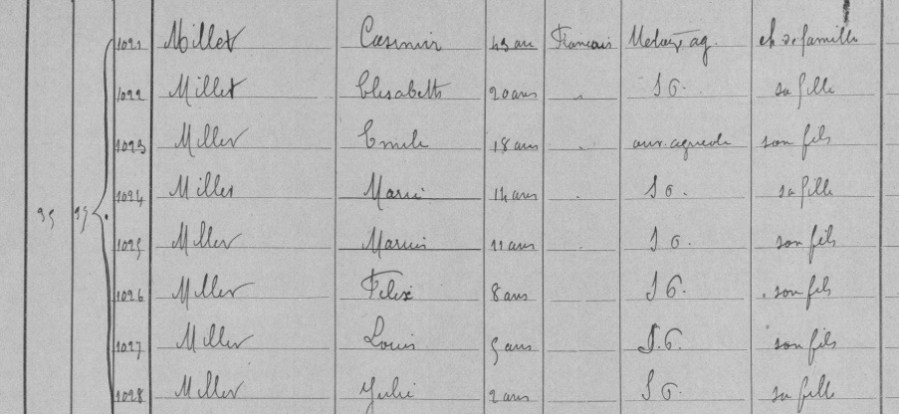 1021 Millet Casimir 43 ans Français Métay. ag. ch de famille
1022 Millet Elisabeth 20 ans " S G. sa fille
1023 Millet Emile 18 ans " ouv. agricole son fils
1024 Millet Marie 14 ans " S G. sa fille
95 95 1025 Millet Marius 11 ans " S G. son fils
1026 Millet Felix 8 ans S G. son fils
1027 Millet Louis 5 ans S. G. son fils
1028 Millet Julie 2 ans S G. sa fille